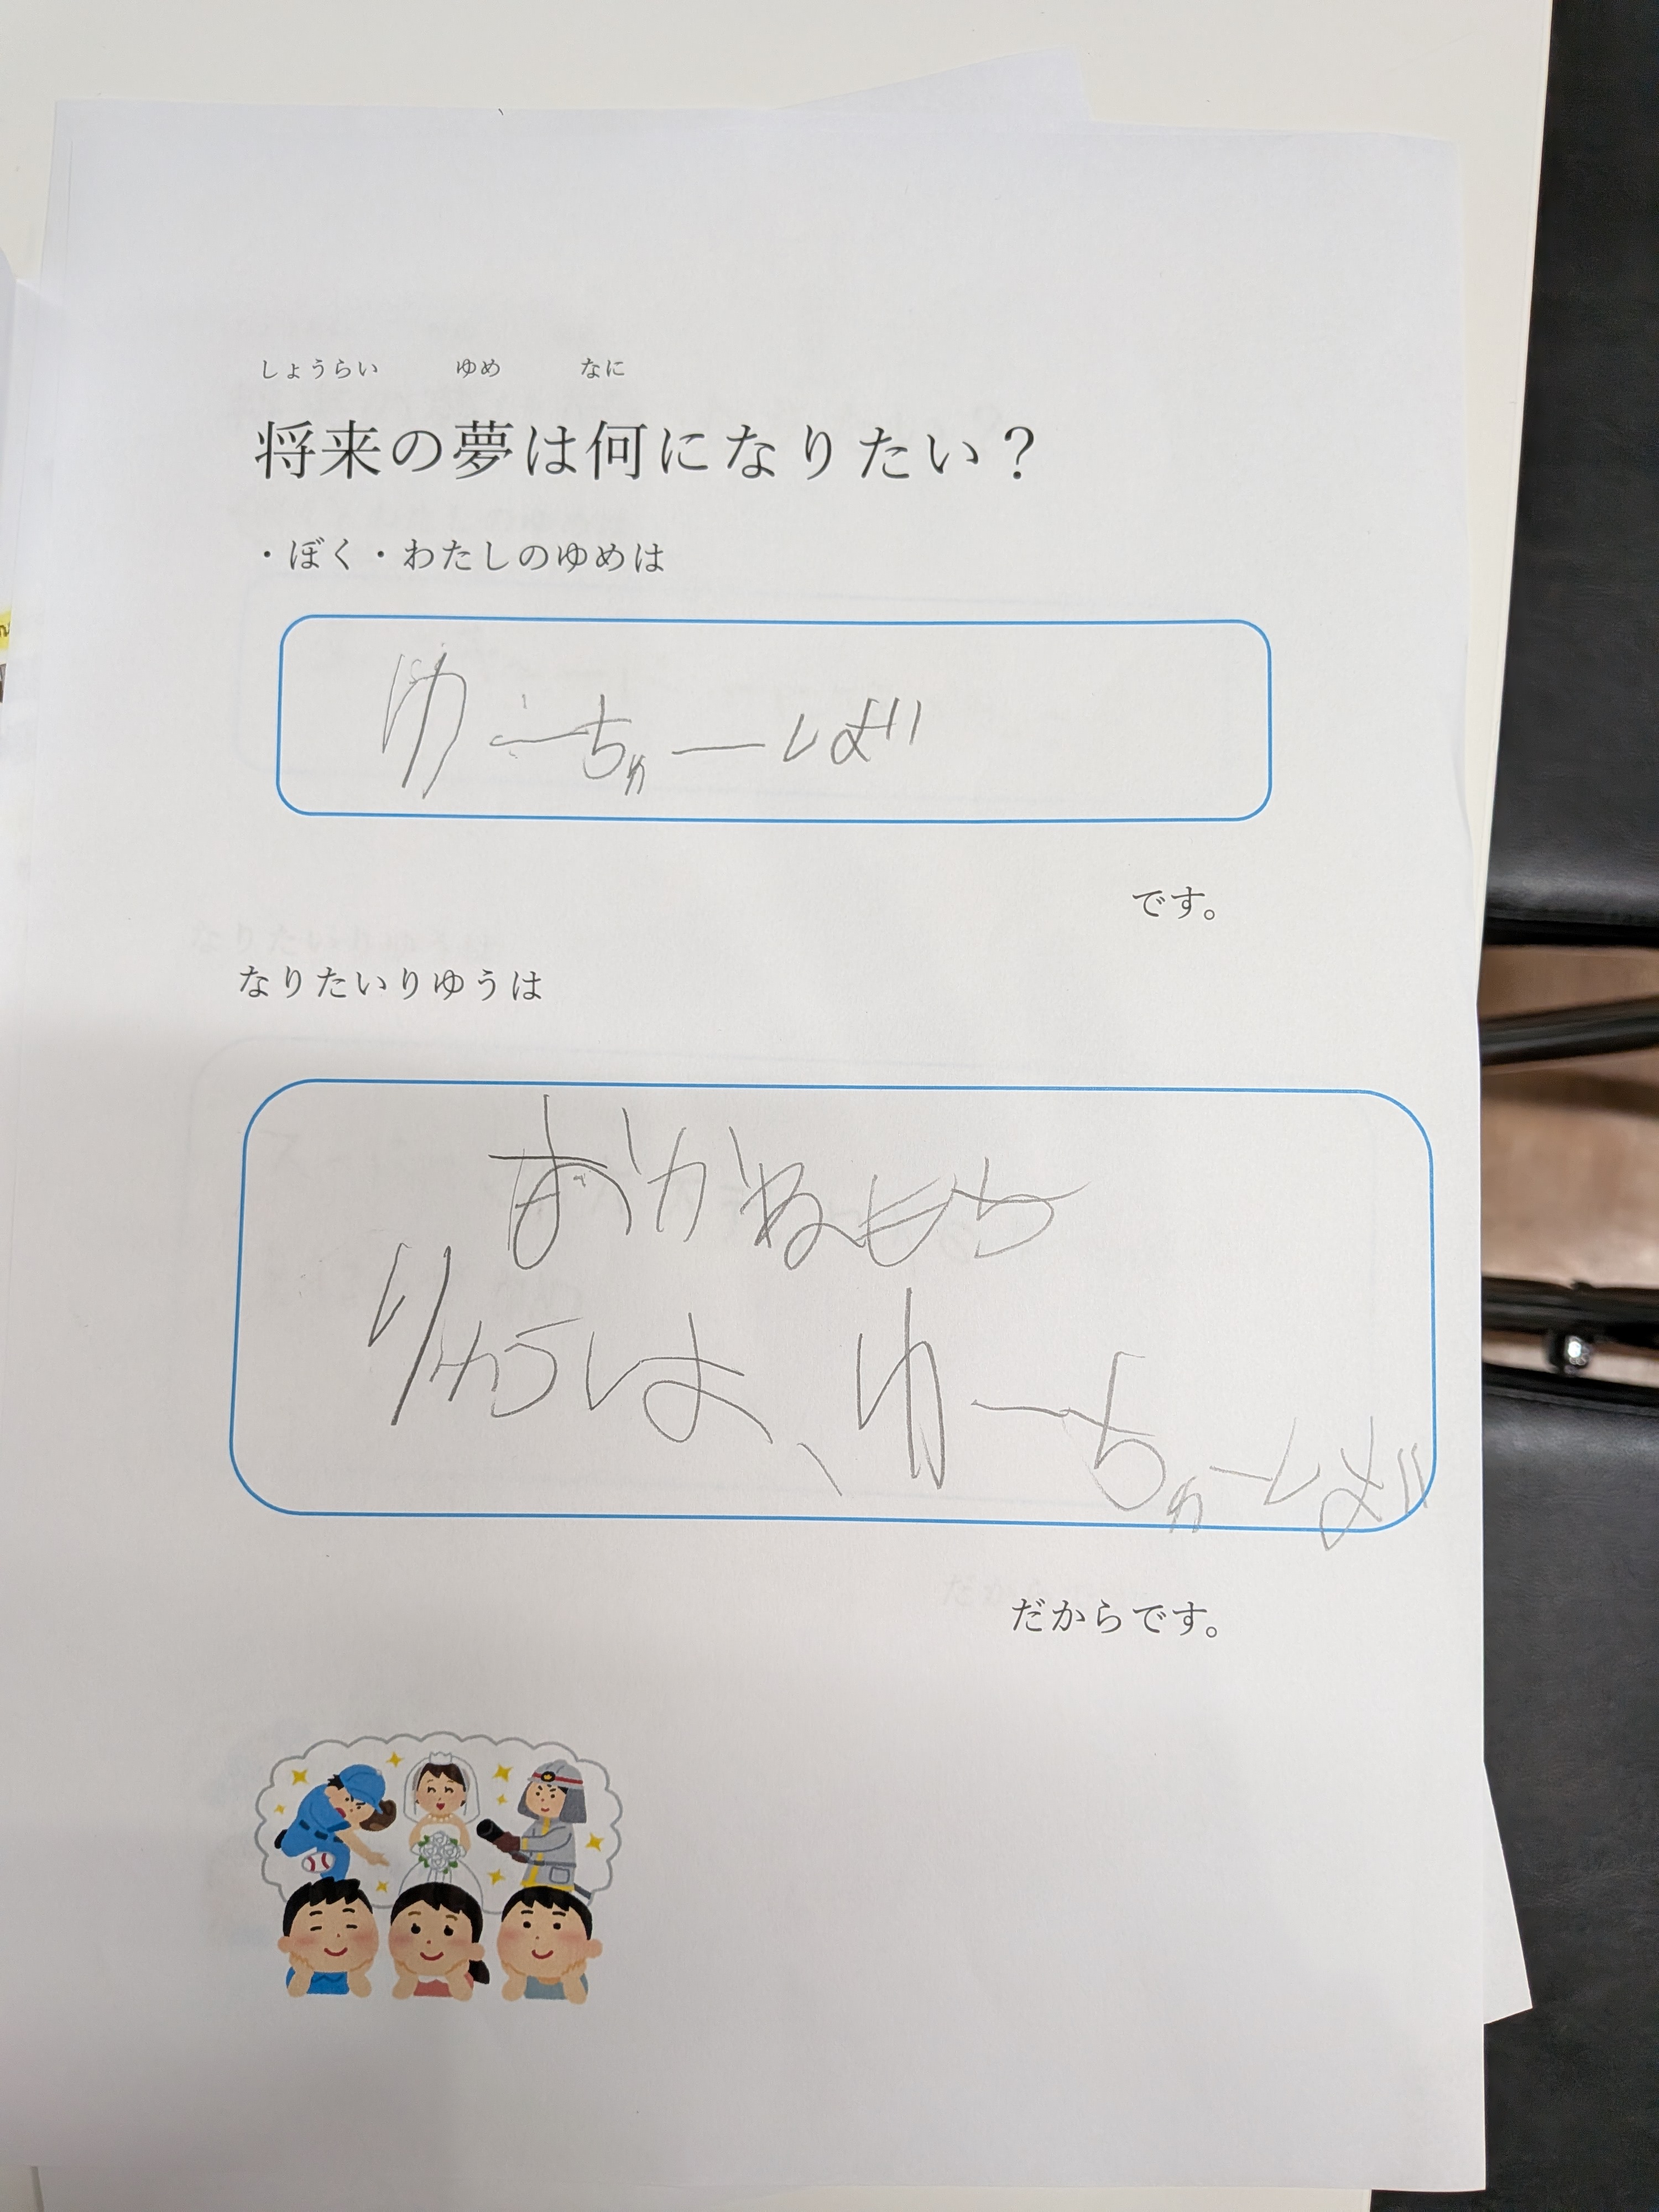 しょうらい ゆめ なに
将来の夢は何になりたい？
・ぼく・わたしのゆめは
ゆーちゅーば
です。
なりたいりゆうは
おかねもち
りゅうは、ゆーちゅーば
だからです。